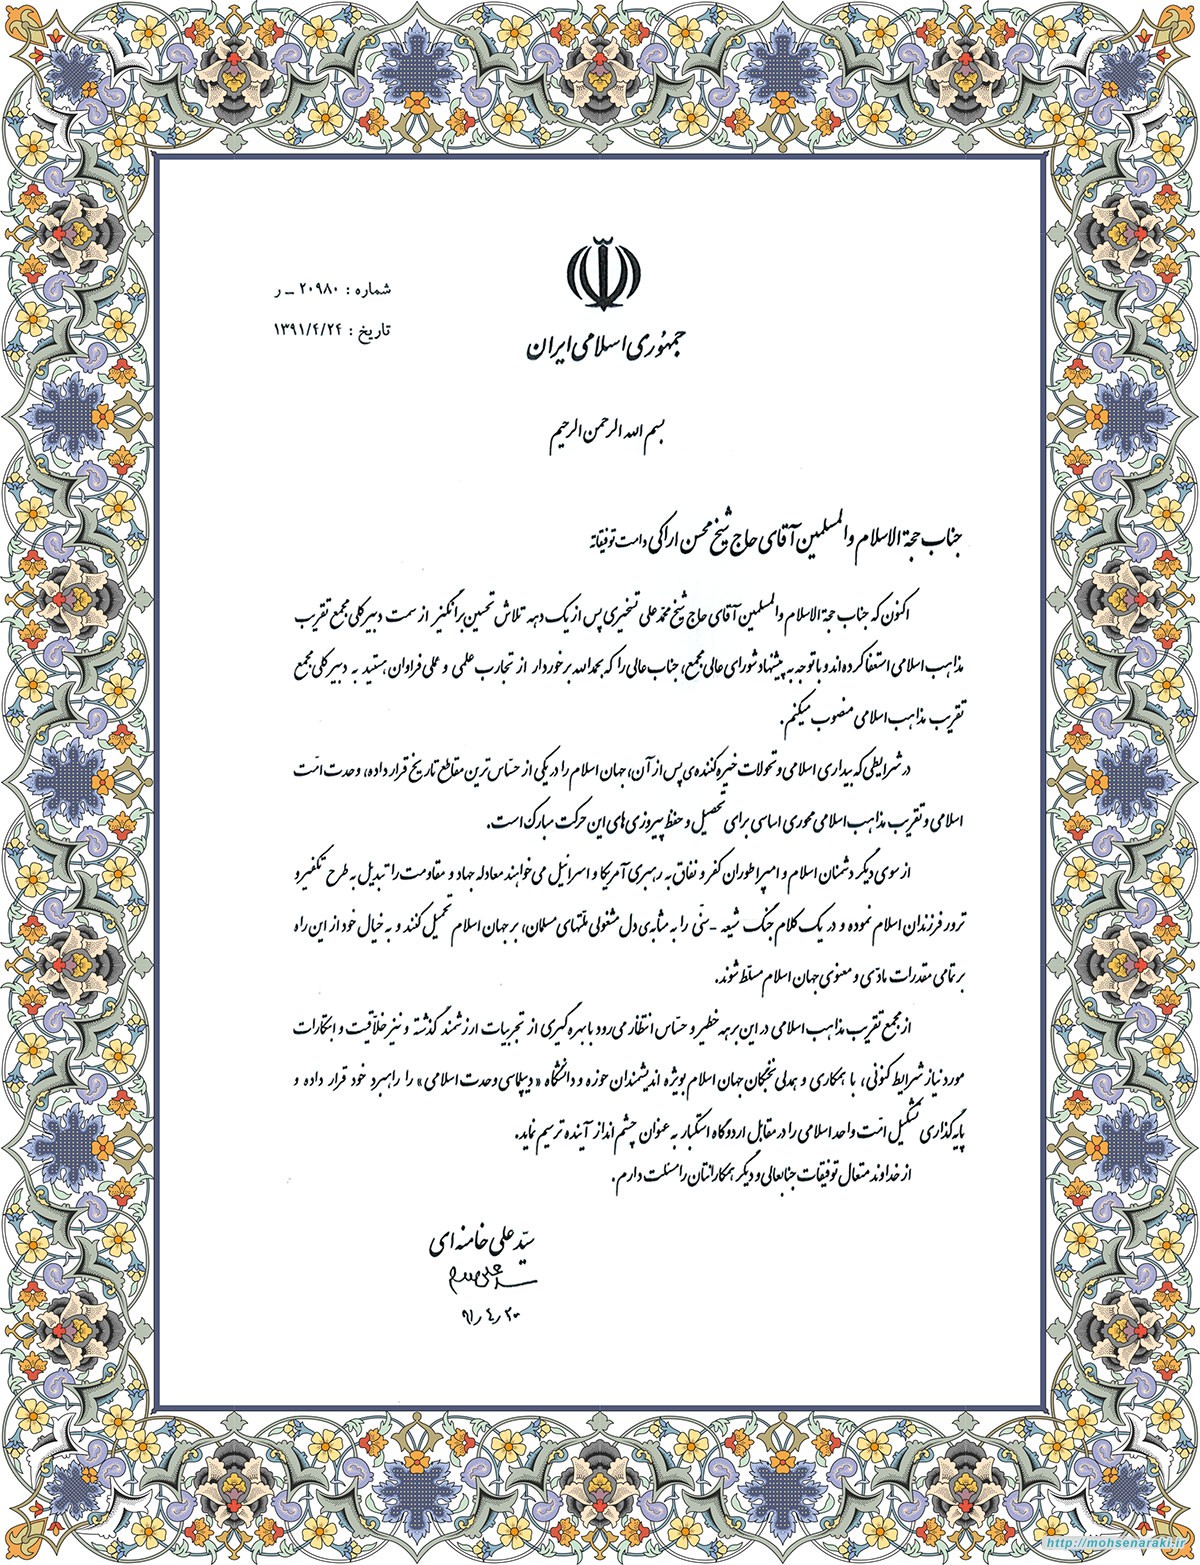 شماره : ۲۰۹۸۰ ـ ر
تاریخ : ۱۳۹۱/۴/۲۴
جمهوری اسلامی ایران
بسم الله الرحمن الرحیم
جناب حجة الاسلام والمسلمین آقای حاج شیخ محسن اراکی دامت توفیقاته
اکنون که جناب حجة الاسلام والمسلمین آقای حاج شیخ محمد علی تسخیری پس از یک دهه تلاش تحسین برانگیز از سمت دبیر کلی مجمع تقریب
مذاهب اسلامی استعفا کرده اند و با توجه به پیشنهاد شورای عالی مجمع، جناب عالی را که بحمدالله برخوردار از تجارب علمی و عملی فراوان هستید به دبیر کلی مجمع
تقریب مذاهب اسلامی منصوب میکنم.
در شرایطی که بیداری اسلامی و تحولات خیره کننده ی پس از آن، جهان اسلام را در یکی از حسّاس ترین مقاطع تاریخ قرار داده، وحدت امّت
اسلامی و تقریب مذاهب اسلامی محوری اساسی برای تحصیل و حفظ پیروزی های این حرکت مبارک است.
از سوی دیگر دشمنان اسلام و امپراطوران کفر و نفاق به رهبری آمریکا و اسرائیل می خواهند معادله جهاد و مقاومت را تبدیل به طرح تکفیر و
ترور فرزندان اسلام نموده و در یک کلام جنگ شیعه - سنّی را به مثابه ی دل مشغولی ملّتهای مسلمان، بر جهان اسلام تحمیل کنند و به خیال خود از این راه
بر تمامی مقدرات مادّی و معنوی جهان اسلام مسلّط شوند.
از مجمع تقریب مذاهب اسلامی در این برهه خطیر و حسّاس انتظار می رود با بهره گیری از تجربیات ارزشمند گذشته و نیز خلاّقیت و ابتکارات
مورد نیاز شرایط کنونی، با همکاری و همدلی نخبگان جهان اسلام بویژه اندیشمندان حوزه و دانشگاه «دیپلماسی وحدت اسلامی» را راهبرد خود قرار داده و
پایه گذاری تشکیل امّت واحد اسلامی را در مقابل اردوگاه استکبار به عنوان چشم انداز آینده ترسیم نماید.
از خداوند متعال توفیقات جنابعالی و دیگر همکارانتان را مسئلت دارم.
سیّد علی خامنه ای
۹۱٫۴٫۲۰
http://mohsenaraki.ir